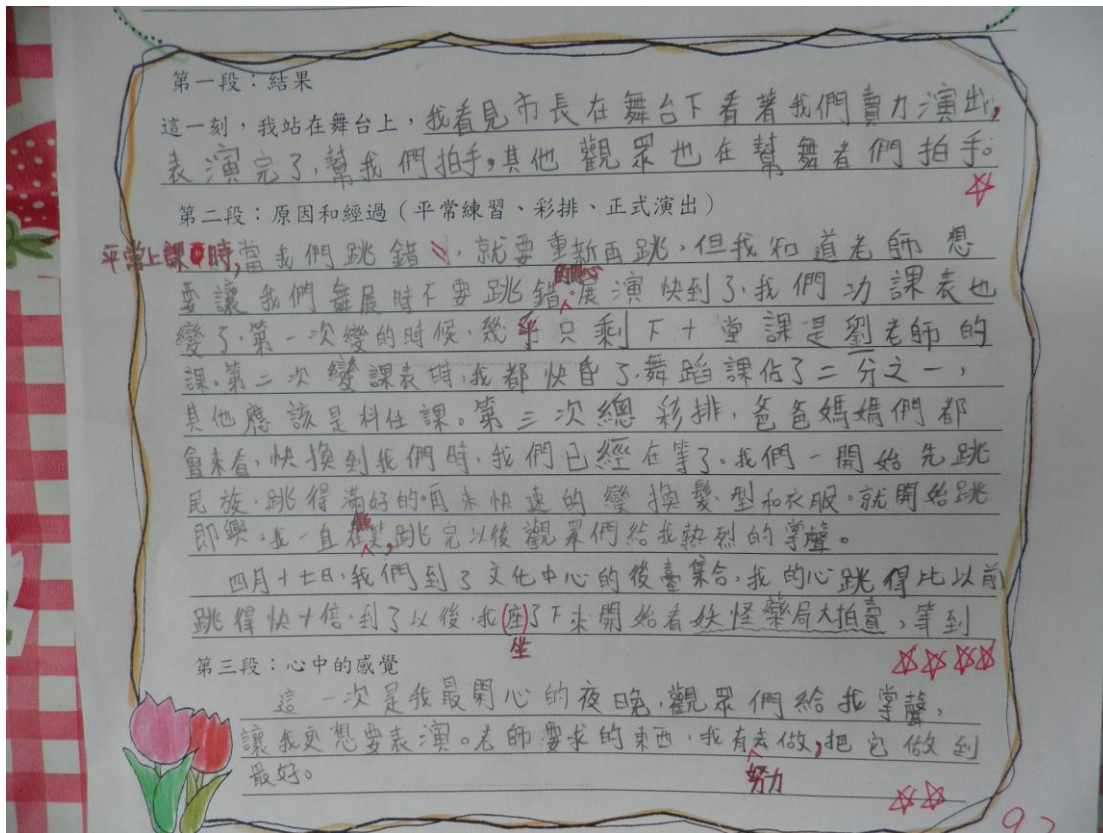 第一段：結果
這一刻，我站在舞台上，我看見市長在舞台下看著我們賣力演出，
表演完了，幫我們拍手，其他觀眾也在幫舞者們拍手。
第二段：原因和經過（平常練習、彩排、正式演出）
平常上課時，當我們跳錯，就要重新再跳，但我知道老師想
要讓我們舞展時不要跳錯。展演快到了，我們功課表也
變了，第一次變的時候，幾乎只剩下十堂課是劉老師的
課。第二次變課表時，我都快昏了，舞蹈課佔了二分之一，
其他應該是科任課。第三次總彩排，爸爸媽媽們都
會來看，快換到我們時，我們已經在等了。我們一開始先跳
民族，跳得滿好的。再來快速的變換髮型和衣服。就開始跳
即興，我一直在笑，跳完以後觀眾們給我熱烈的掌聲。
四月十七日，我們到了文化中心的後臺集合，我的心跳得比以前
跳得快十倍，到了以後，我座了下來開始看妖怪藥局大拍賣，等到
坐
第三段：心中的感覺
這一次是我最開心的夜晚，觀眾們給我掌聲，
讓我更想要表演。老師要求的東西，我有去做，把它做到
努力
最好。